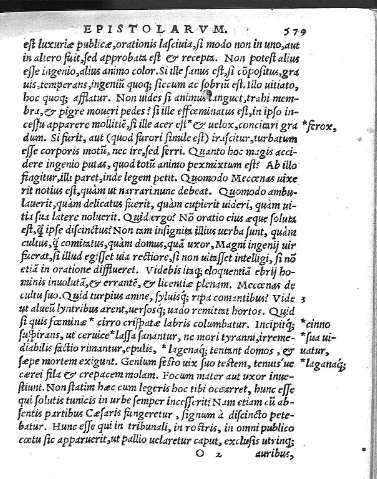 EPISTOLARVM. 579
est luxuriæ publicæ, orationis lasciuia, si modo non in uno, aut
in altero fuit, sed approbata est & recepta. Non potest alius
esse ingenio, alius animo color. Si ille sanus est, si cōpositus, gra
uis, temperans, ingeniū quoq; siccum ac sobriū est. Illo uitiato,
hoc quoq; afflatur. Non uides si animus languet, trahi mem-
bra, & pigre moueri pedes? si ille effœminatus est, in ipso in-
cessu apparere mollitiē, si ille acer est * & uelox, concitari gra * ferox,
dum. Si furit, aut (quod furori simile est) irascitur, turbatum
esse corporis motū, nec ire, sed ferri. Quanto hoc magis acci-
dere ingenio putas, quod totū animo permixtum est? Ab illo
fingitur, illi paret, inde legem petit. Quomodo Mecœnas uixe
rit notius est, quàm ut narrari nunc debeat. Quomodo ambu-
lauerit, quàm delicatus fuerit, quàm cupierit uideri, quàm ui-
tia sua latere noluerit. Quid ergo? Nō oratio eius æque soluta
est, q̃ ipse discinctus? Non tam insignita illius uerba sunt, quàm
cultus, q̃ comitatus, quàm domus, quā uxor, Magni ingenij uir
fuerat, si illud egisset uia rectiore, si non uitasset intelligi, si nō
etiā in oratione difflueret. Videbis itaq; eloquentiā ebrij ho-
minis inuolutā, & errantē, & licentiæ plenam. Mecœnas de
cultu suo. Quid turpius amne, syluisq; ripa comantibus? Vide 3
ut alueū lyntribus arent, uersoq; uado remittat hortos. Quid
si quis fœminæ * cirro crispatæ labris columbatur. Incipitq; * cinno
suspirans, ut ceruice * lassa sanantur, ne mori tyranni, irreme- * sua ui-
diabilis factio rimantur, epulis, * lagenaq; tentant domos, & uatur,
sæpe mortem exigunt. Genium festo uix suo testem, tenuis ue * laganaq;
cærei fila & crepacem molam. Focum mater aut uxor inue-
stiunt. Non statim hæc cum legeris hoc tibi occurret, hunc esse
qui solutis tunicis in urbe semper incesserit? Nam etiam cū ab-
sentis partibus Cæsaris fungeretur, signum à discincto pete-
batur. Hunc esse qui in tribunali, in rostris, in omni publico
cœtu sic apparuerit, ut pallio uelaretur caput, exclusis utrinq;
O 2 auribus,